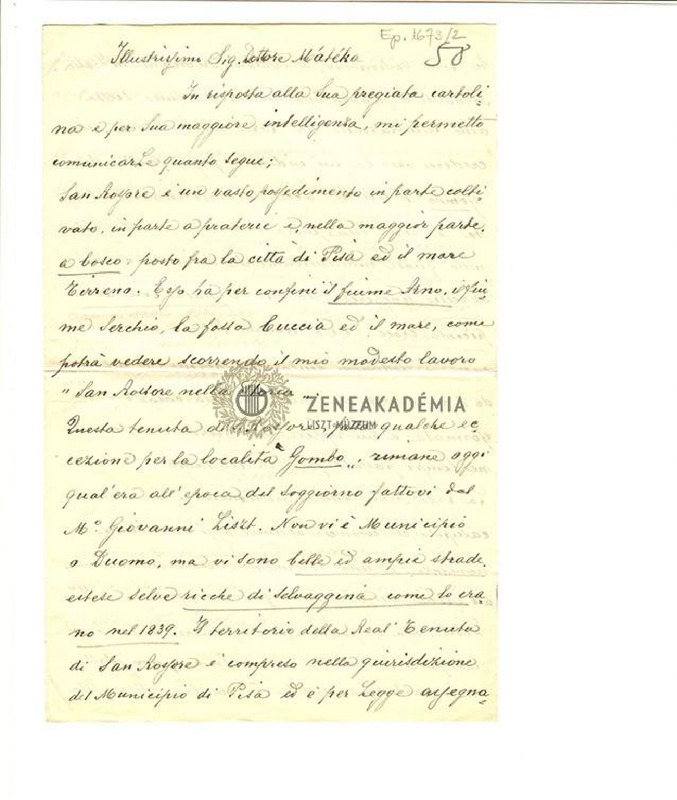 Ep. 1673/2
58
Illustrissimo Sig. Dottore Mátéka
In risposta alla Sua pregiata cartoli-
na e per Sua maggiore intelligenza, mi permetto
comunicarLe quanto segue;
San Rossore è un vasto possedimento in parte colti-
vato, in parte a praterie e, nella maggior parte,
a bosco: posto fra la città di Pisa ed il mare
Tirreno. Esso ha per confini il fiume Arno, il fiu-
me Serchio, la fossa Cuccia ed il mare, come
potrà vedere scorrendo il mio modesto lavoro
"San Rossore nella Storia".
ZENEAKADÉMIA
LISZT MÚZEUM
Questa tenuta di S. Rossore, salvo qualche ec-
cezione per la località "Gombo", rimane oggi
qual'era all'epoca del soggiorno fattovi dal
M.o Giovanni Liszt. Non vi è Municipio
o Duomo, ma vi sono belle ed ampie strade,
estese selve ricche di selvaggina come lo era-
no nel 1839. Il territorio della Real Tenuta
di San Rossore è compreso nella giurisdizione
del Municipio di Pisa ed è per Legge assegna-